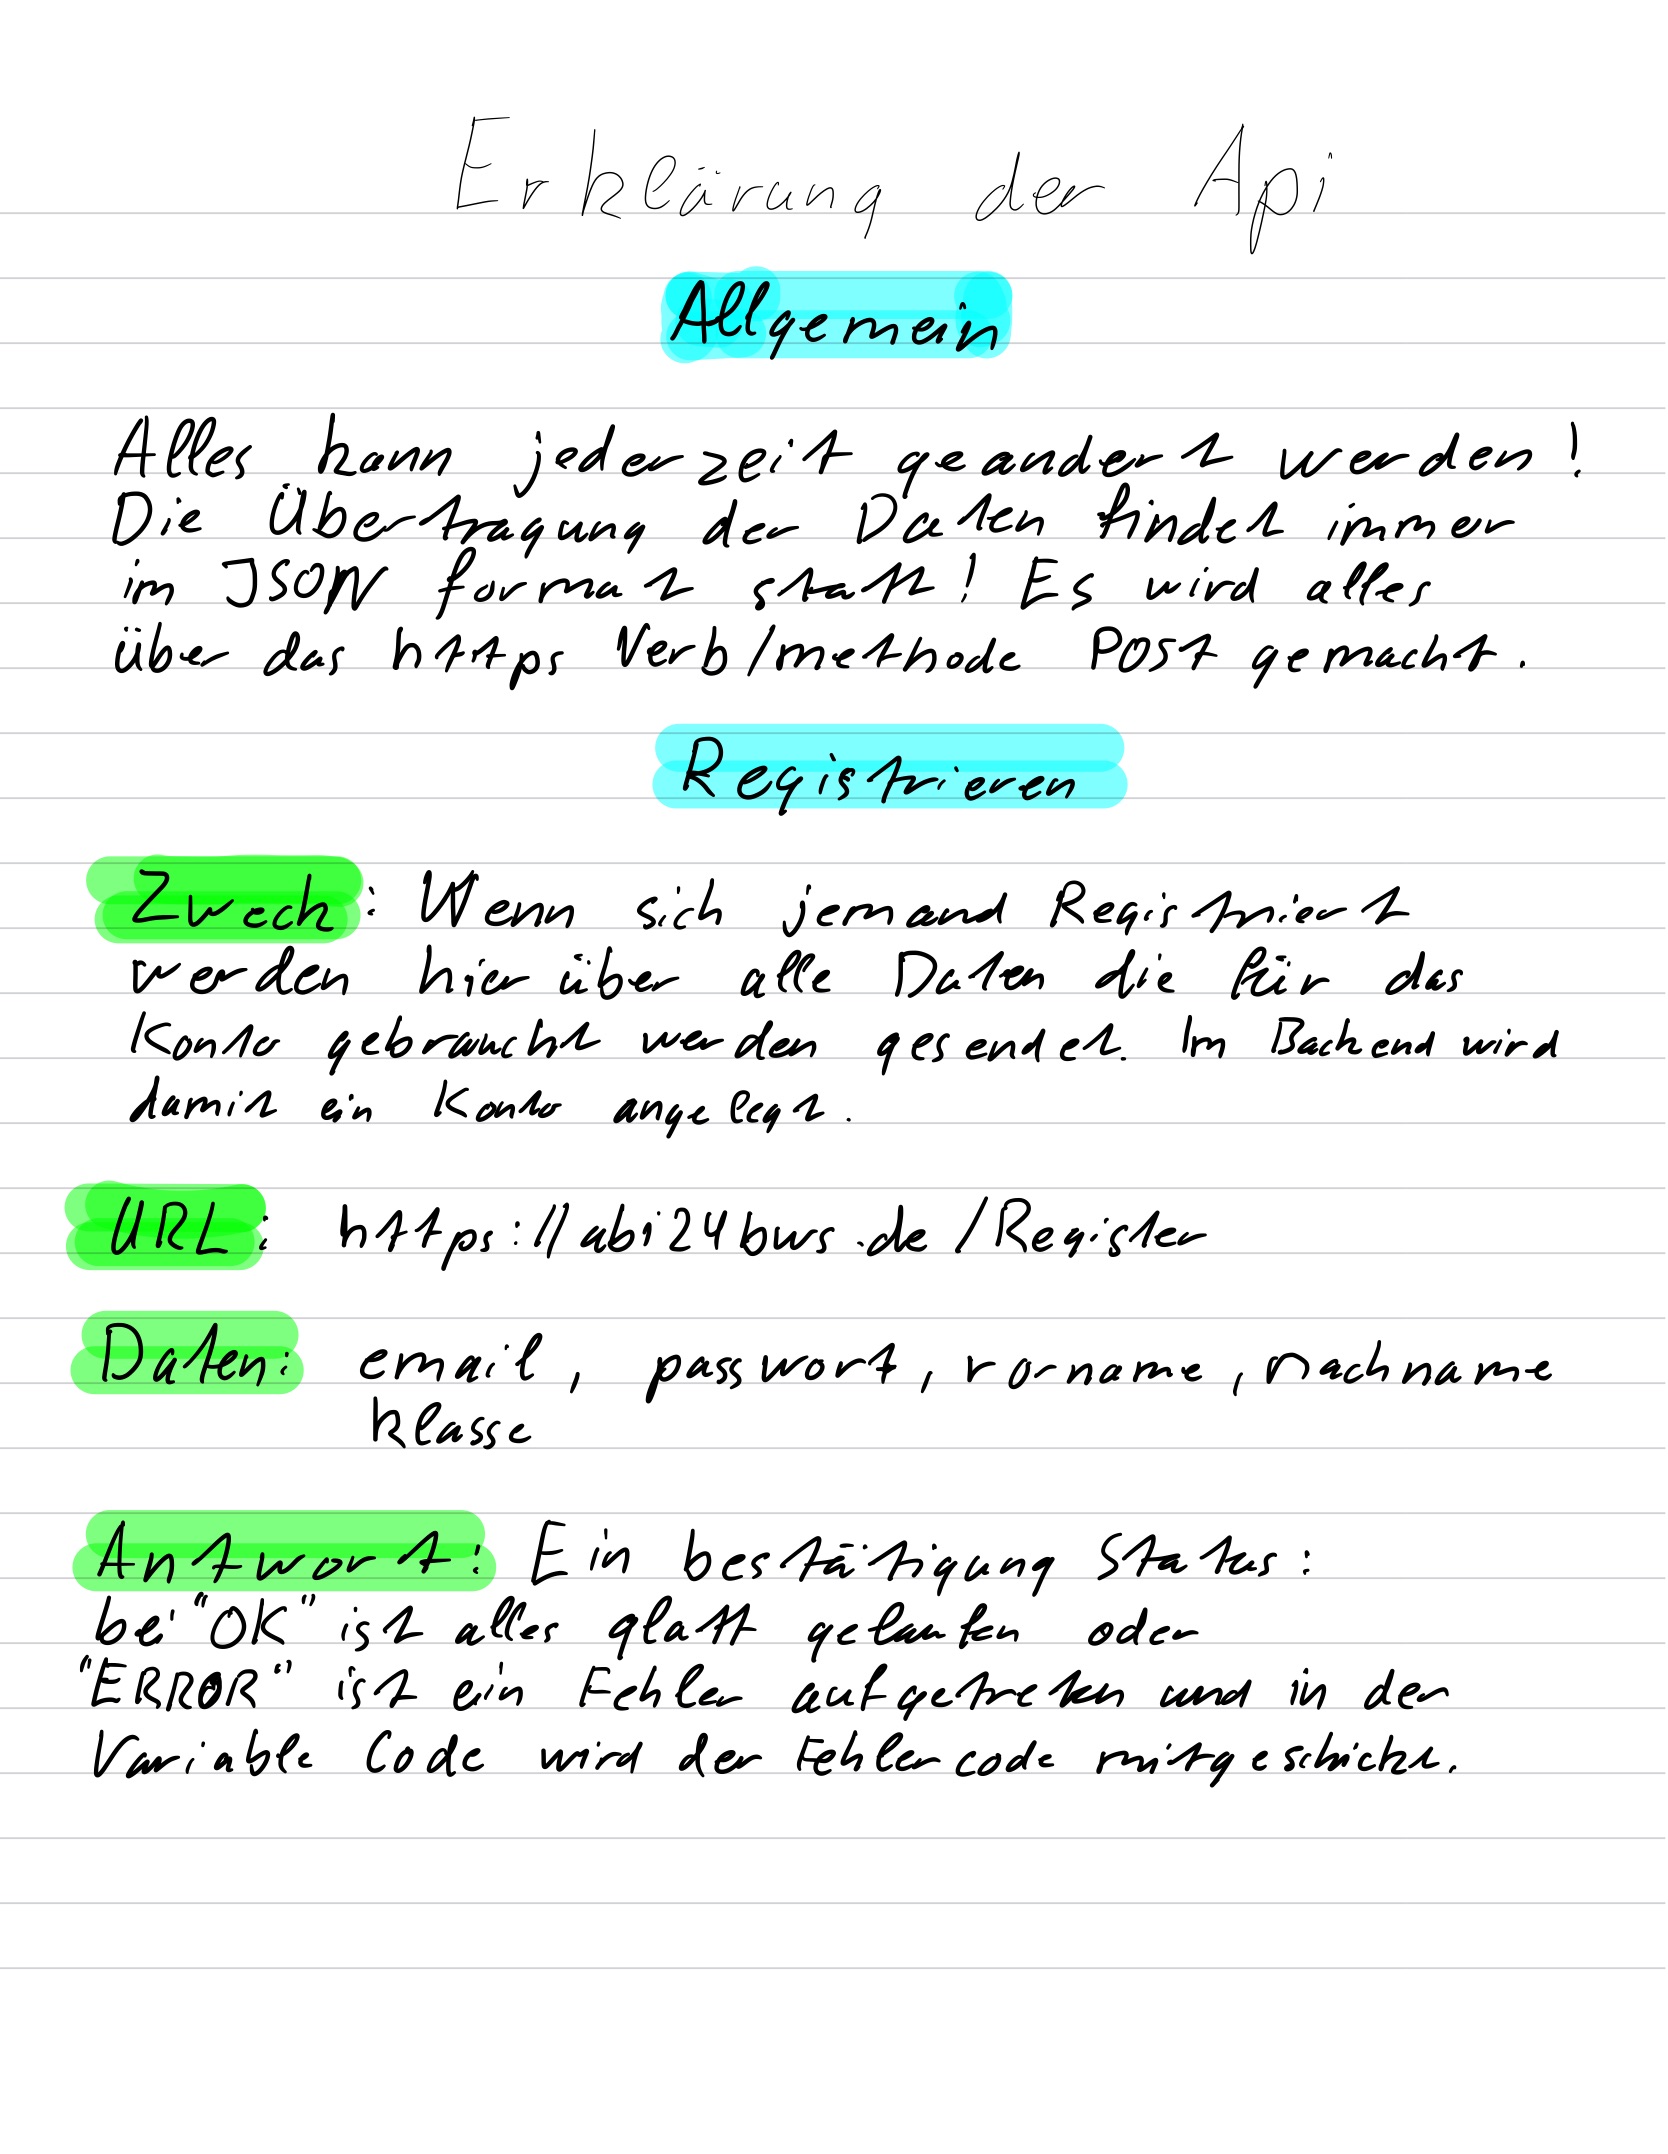 Erklärung der Api
Allgemein
Alles kann jederzeit geandert werden!
Die Übertragung der Daten findet immer
im JSON format statt! Es wird alles
über das https Verb/methode POST gemacht.
Registrieren
Zweck: Wenn sich jemand Registriert
werden hier über alle Daten die für das
Konto gebraucht werden gesendet. Im Backend wird
damit ein Konto angelegt.
URL: https://abi24bws.de/Register
Daten: email, passwort, vorname, nachname
klasse
Antwort: Ein bestätigung Status:
bei "OK" ist alles glatt gelaufen oder
"ERROR" ist ein Fehler aufgetreten und in der
Variable Code wird der Fehlercode mitgeschickt.